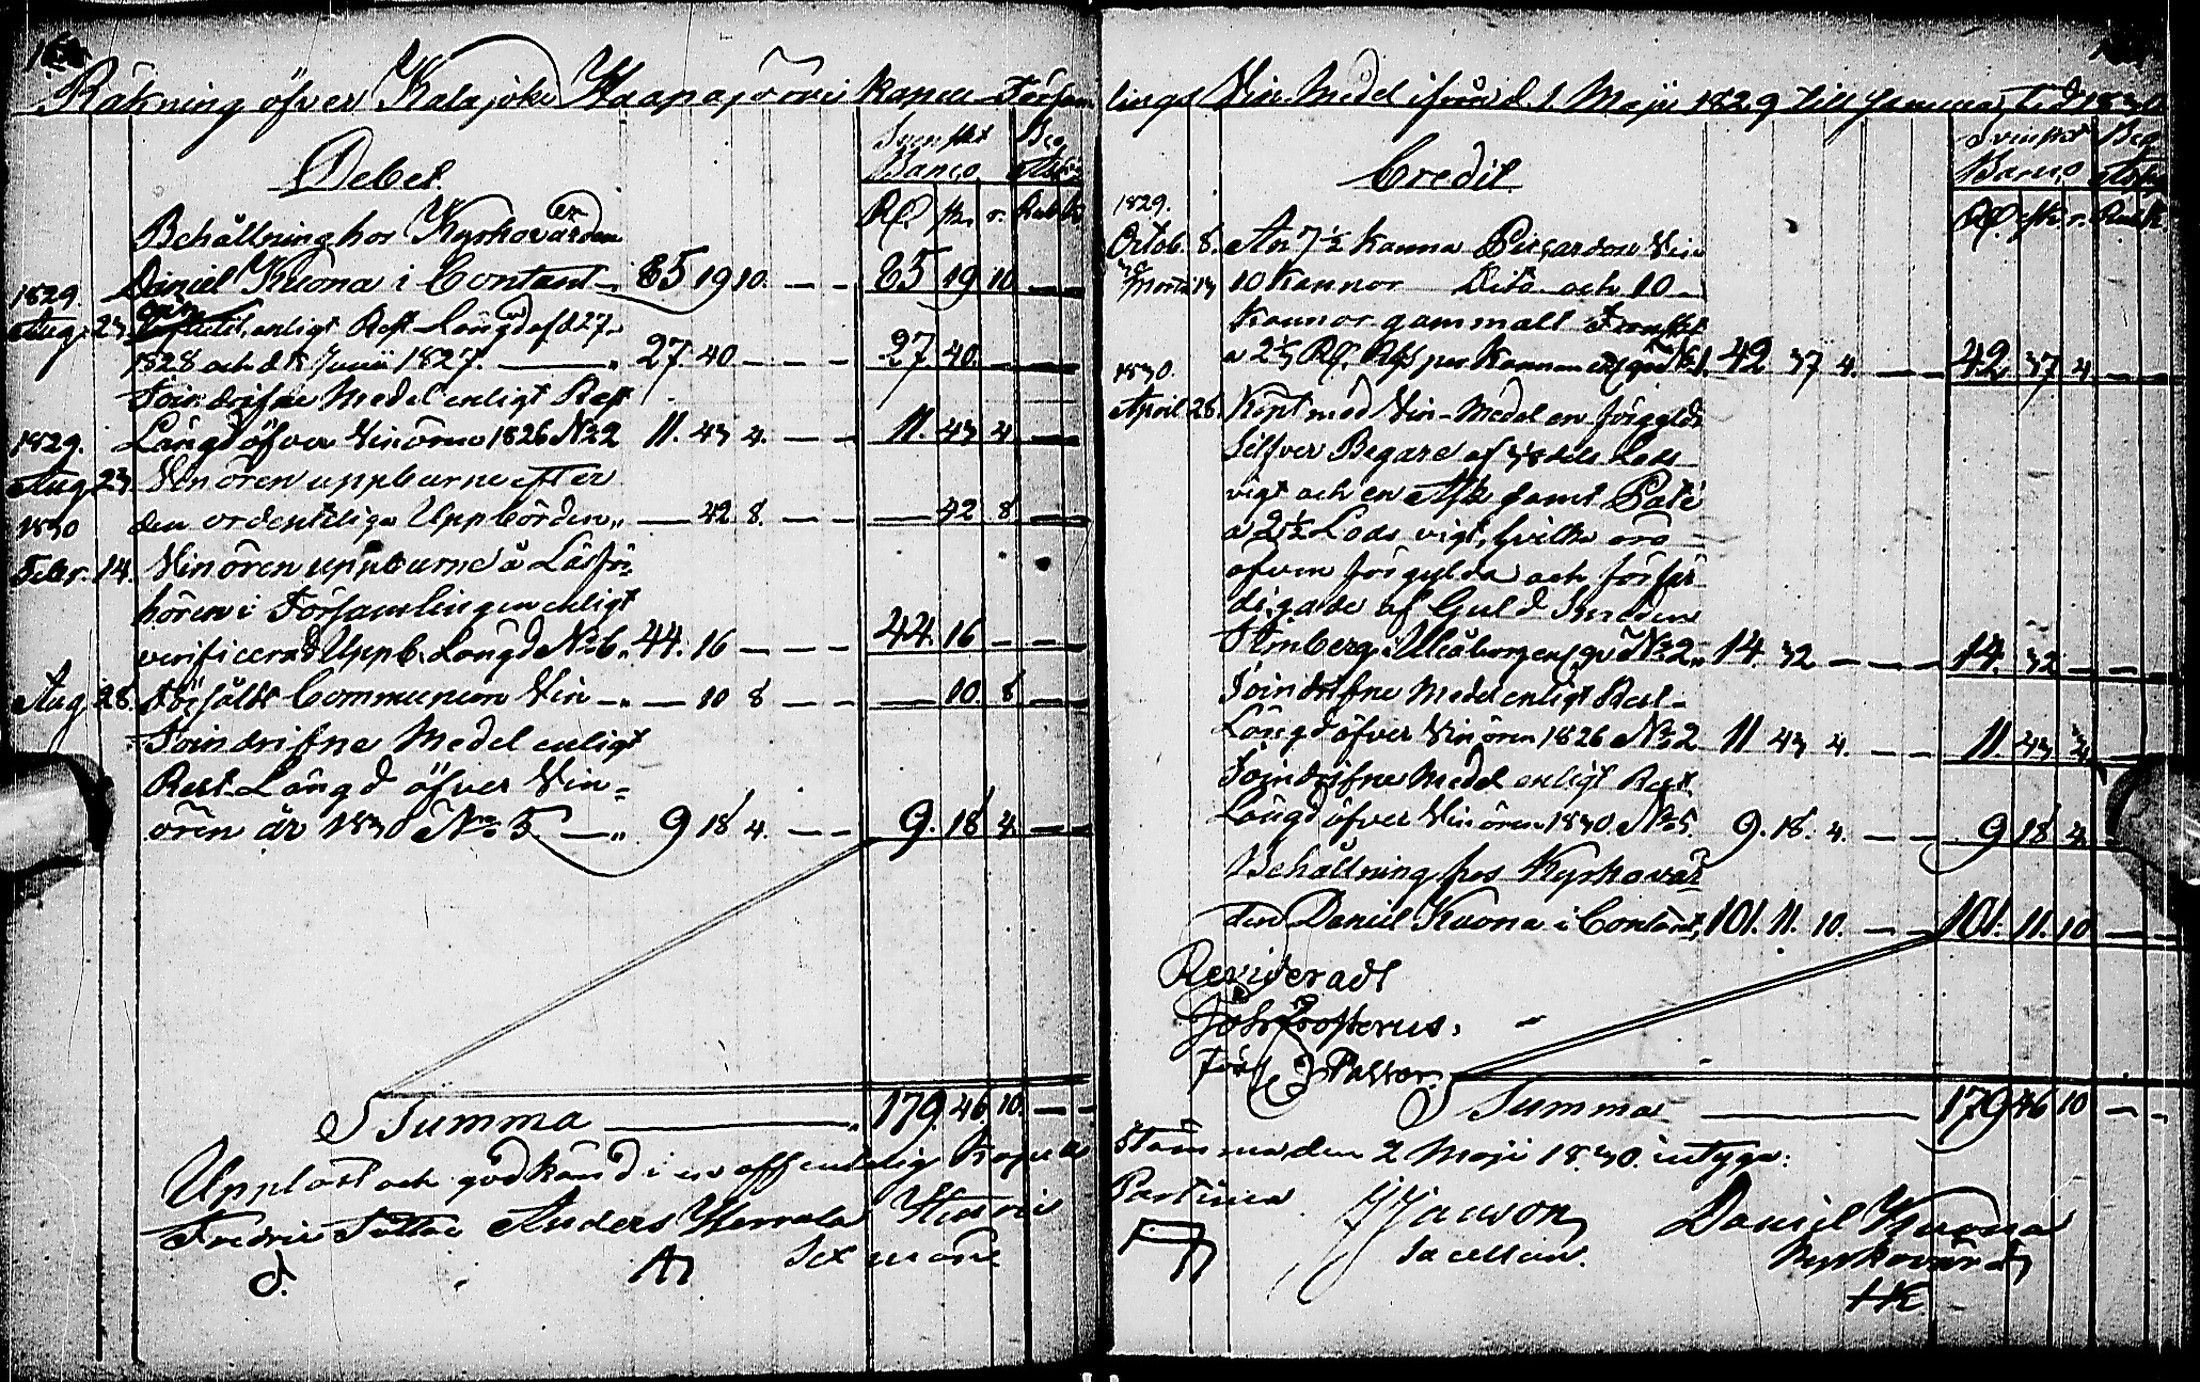 Räkning öfver Kalajoki Haapajärvi Kapell Försam
Debet.
Svenskt Banco
Rd. sk. r. Rub K.
Behållning hos Kyrkovärden
1829. Daniel Kuona i Contant 85 19 10. — — 85 19 10 —
Aug. 23 enligt Rest Längd af d 27
1828 och d 8 Junii 1827. — 27. 40 — — 27. 40. —
Toindrifne Medel enligt Rest
1829. Längd öfver Vinören 1826 No 2 11. 43 4. — — 11. 43 4 —
Aug 23 Vinören uppburne efter
1830 den ordentliga Uppbörden „ — 42 8. — — — 42 8 —
Febr. 14. Vinören uppburne å Läsför=
hören i Församlingen enligt
verificerad Uppb. Längd No 6. 44. 16 — — — 44. 16 — —
Aug 28. Försåldt Communion Vin — „ — 10 8 — — — 10. 8 —
Toindrifne Medel enligt
Rest Längd öfver Vin=
ören år 1830 No 5 — „ 9 18 4. — — 9. 18 4. —
Summa — 179. 46. 10. — —
Uppläst och godkänd i en offentelig Kapell
Fredric Anders Herrala Henric
Sexmän
lings Vin Medel ifrån d. 1 Maji 1829 till samma tid 1830
Credit
Svenskt Banco
Rd. sk. r. Rub K
1829.
Octob. 8. An 7½ Kanna Vin
10 Kannor Dito och 10
Kannor gammalt Franskt
1830. a 2⅓ Rd. per Kannan No 1. 42 37 4. — — 42 37 4 —
April 28. Köpt med Vin-Medel en förgyld
Silfver Bägare af Lods
vigt och en Ask samt Paté
a 2½ Lods vigt, hvilka äro
äfven förgylda och förfär
digade af Guld Smeden
Uleåborg No 2 „ 14. 32 — — 14. 32 — —
Toindrifne Medel enligt Rest
Längd öfver Vinören 1826 No 2 11 43 4. — — 11. 43 4
Toindrifne Medel enligt Rest
Längd öfver Vinören 1830. No 5. 9. 18. 4. — — 9 18 4
Behållning hos Kyrkovär
den Daniel Kuona i Contant, 101. 11. 10. — — 101. 11. 10 —
Revideradt
Joh Frosterus.
Pastor.
Summa — 179 46 10 — —
Stämma, den 2 Maji 1830. intyga:
Daniel Kuona
Sacellan. Kyrkovärd
HK